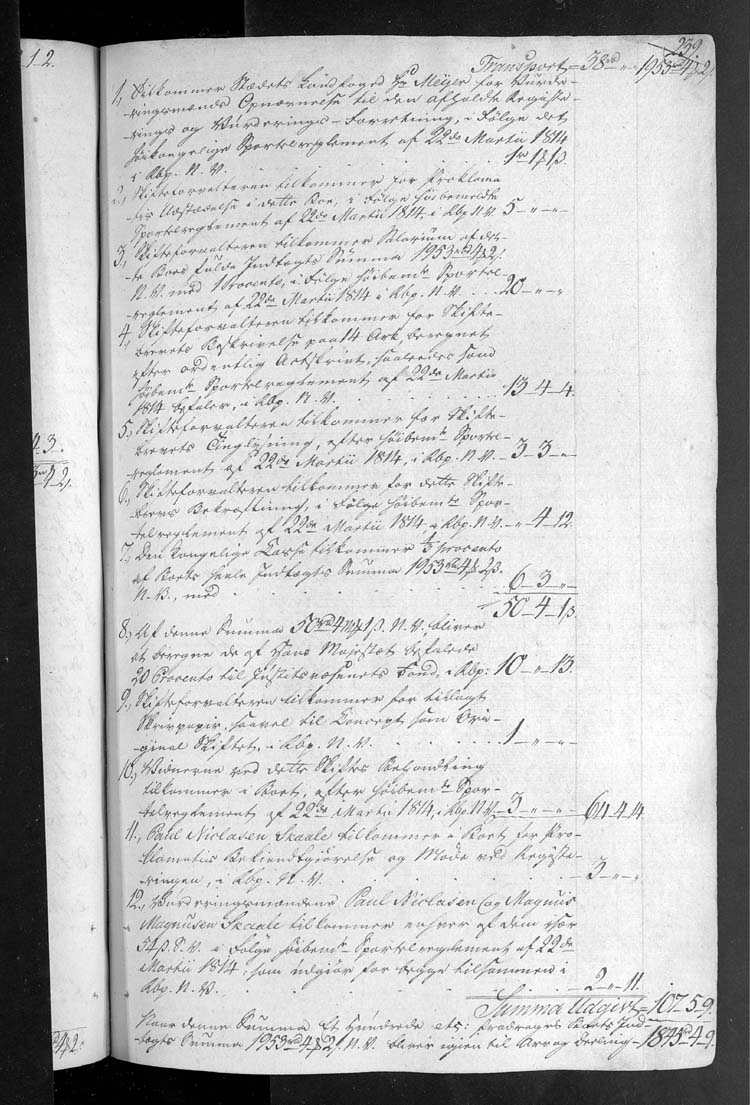 239.
Transport = 38rd „ „ 1953rd 4 ꝟ 2ß.
1, Tilkommer Stædets Landfoged Hr Meÿer for Vurde-
-ringsmænds Opnævnelse til den afholdte Registe-
rings og Vurderings-Forretning, i Følge det
høikongelige Sportelreglement af 22de Martii 1814
i Rbp. N. V. 1rd 1ꝟ 1ß.
2, Skifteforvalteren tilkommer for Proklama
tis Udstædelse i dette Boe, i Følge høibemeldte
Sportelreglement af 22de Martii 1814 i Rbp N. V. 5 „ „
3, Skifteforvalteren tilkommer Salarium af det-
te Boes fulde Indtægts Summa 1953rd 4ꝟ 2ß.
N. V. med 1 Procento, i Følge høibemte Sportel-
-reglement af 22de Martii 1814 i Rbp. N. V. 20 „ „
4, Skifteforvalteren tilkommer for Skifte-
brevets Beskrivelse paa 14 Ark, beregnet
efter ordentlig Actskrivt, saaledes som
høibemte Sportelreglement af 22de Martii
1814 befaler, i Rbp. N. V. 13 4 4
5, Skifteforvalteren tilkommer for Skifte-
brevets Tinglysning, efter høibemte Sportel-
-reglement af 22de Martii 1814, i Rbp. N. V. 3 3 „
6, Skifteforvalteren tilkommer for dette Skifte-
brevs Bekræftning, i Følge høibemte Spor-
telreglement af 22de Martii 1814 i Rbp. N. V. „ 4 12.
7, Den kongelige Casse tilkommer 1/3 procento
af Boets heele Indtægts Summa 1953rd 4ꝟ 2ß.
N. V., med 6 3 „
50 4 1ß.
8, Af denne Summa 50rd 4ꝟ 1ß. N. V., bliver
at beregne de af Hans Majestæt befalede
20 Procento til Justitsvæsenets Fond, i Rbp: 10 „ 13.
9, Skifteforvalteren tilkommer for tillagt
Skrivpapir, saavel til Concept som Ori-
ginal Skiftet, i Rbp. N. V. 1 „ „
10, Vidnerne ved dette Skiftes Behandling
tilkommer i Boet, efter høibemte Spor-
telreglement af 22de Martii 1814, i Rbp. N. V. 3 „ „ 64 4 14.
11, Paul Niclasen Skaale tilkommer i Boet for Pro-
klamatis Bekiendtgiørelse og Møde ved Registe-
ringen, i Rbp. N. V. 3 „ „
12, Vurderingsmændene Paul Niclasen og Magnus
Magnusen Skaale tilkommer enhver af dem især
54ß. S. V. i Følge høibemte Sportelreglement af 22de
Martii 1814, som udgiør for begge tilsammen i
Rbp. N. V. 2 „ 11.
Summa Udgivt = 107 5 9.
Naar denne Summa Et Hundrede etc: fradrages Boets Ind-
-tægts Summa 1953rd 4ꝟ 2ß. N. V. bliver igien til Arv og Deeling 1845rd 4 9.